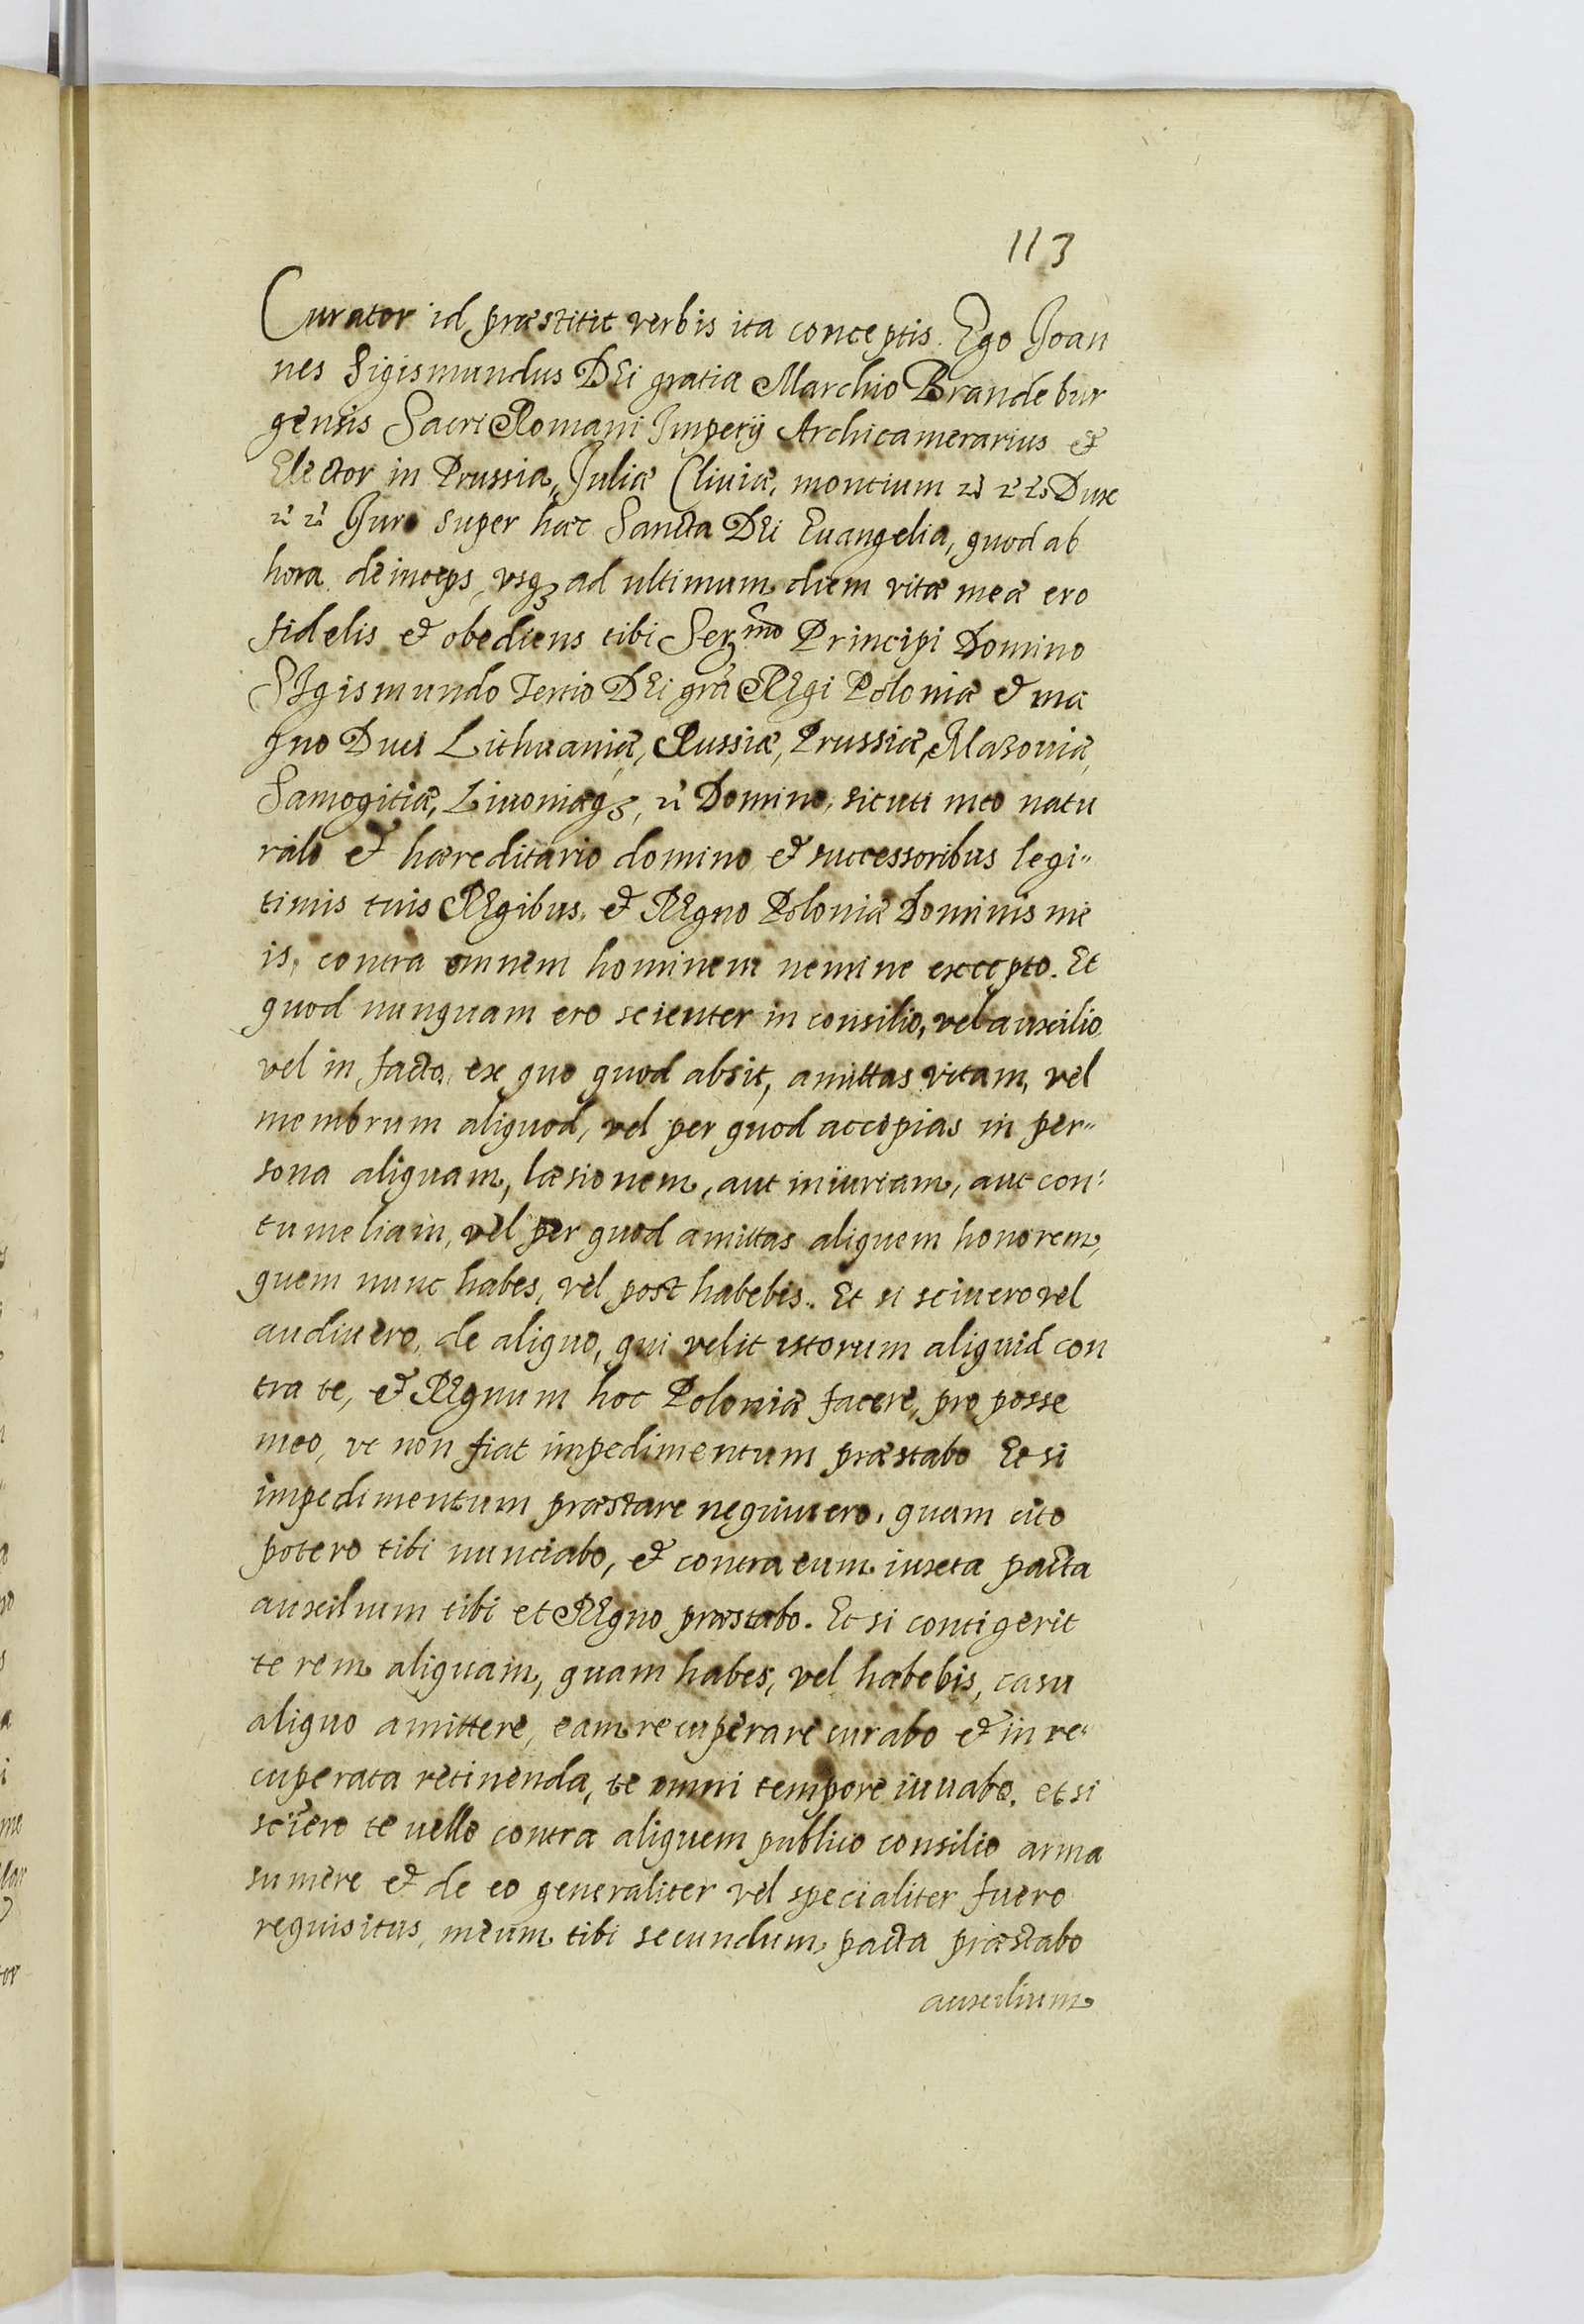 113
Curator id præstitit verbis ita conceptis. Ego Joan
nes Sigismundus DEi gratia Marchio Brandebur
gensis Sacri Romani Imperij Archicamerarius et
Elector in Prussia, Juliæ Cliuiæ, montium Dux
Juro super hæc Sancta DEi Euangelia, quod ab
hora deinceps, vsq₃ ad ultimum diem vitæ meæ ero
fidelis et obediens tibi Ser₃mo Principi Domino
SIgismundo Tertio DEi grã REgi Poloniæ et ma
gno Duci Lithuaniæ, Russiæ, Prussiæ, Mazouiæ,
Samogitiæ, Liuoniæq₃, Domino, sicuti meo natu
rali et hæreditario domino et successoribus legi"
timis tuis REgibus, et REgno Poloniæ Dominis me
is, contra omnem hominem nemine excepto. Et
quod nunquam ero scienter in consilio, vel auxilio
vel in facto, ex quo quod absit, amittas vitam, vel
membrum aliquod, vel per quod accipias in per"
sona aliquam, læsionem, aut iniuriam, aut con:
tumeliam, vel per quod amittas aliquem honorem,
quem nunc habes, vel post habebis. Et si sciuero vel
audiuero, de aliquo, qui velit istorum aliquid con
tra te, et REgnum hoc Poloniæ facere, pro posse
meo, vt non fiat impedimentum præstabo Et si
impedimentum præstare nequiuero, quam cito
potero tibi nunciabo, et contra eum iuxta pacta
auxilium tibi et REgno præstabo. Et si contigerit
te rem aliquam, quam habes, vel habebis, casu
aliquo amittere, eam recuperare curabo et in re:
cuperata retinenda, te omni tempore iuuabo. et si
sciero te uelle contra aliquem publico consilio arma
sumere et de eo generaliter vel specialiter fuero
requisitus, meum tibi secundum pacta præstabo
auxilium